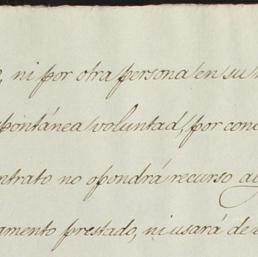 ni por otra persona en su
espontánea voluntad, por
contrato no opondrá recurso
prestado, ni usará de